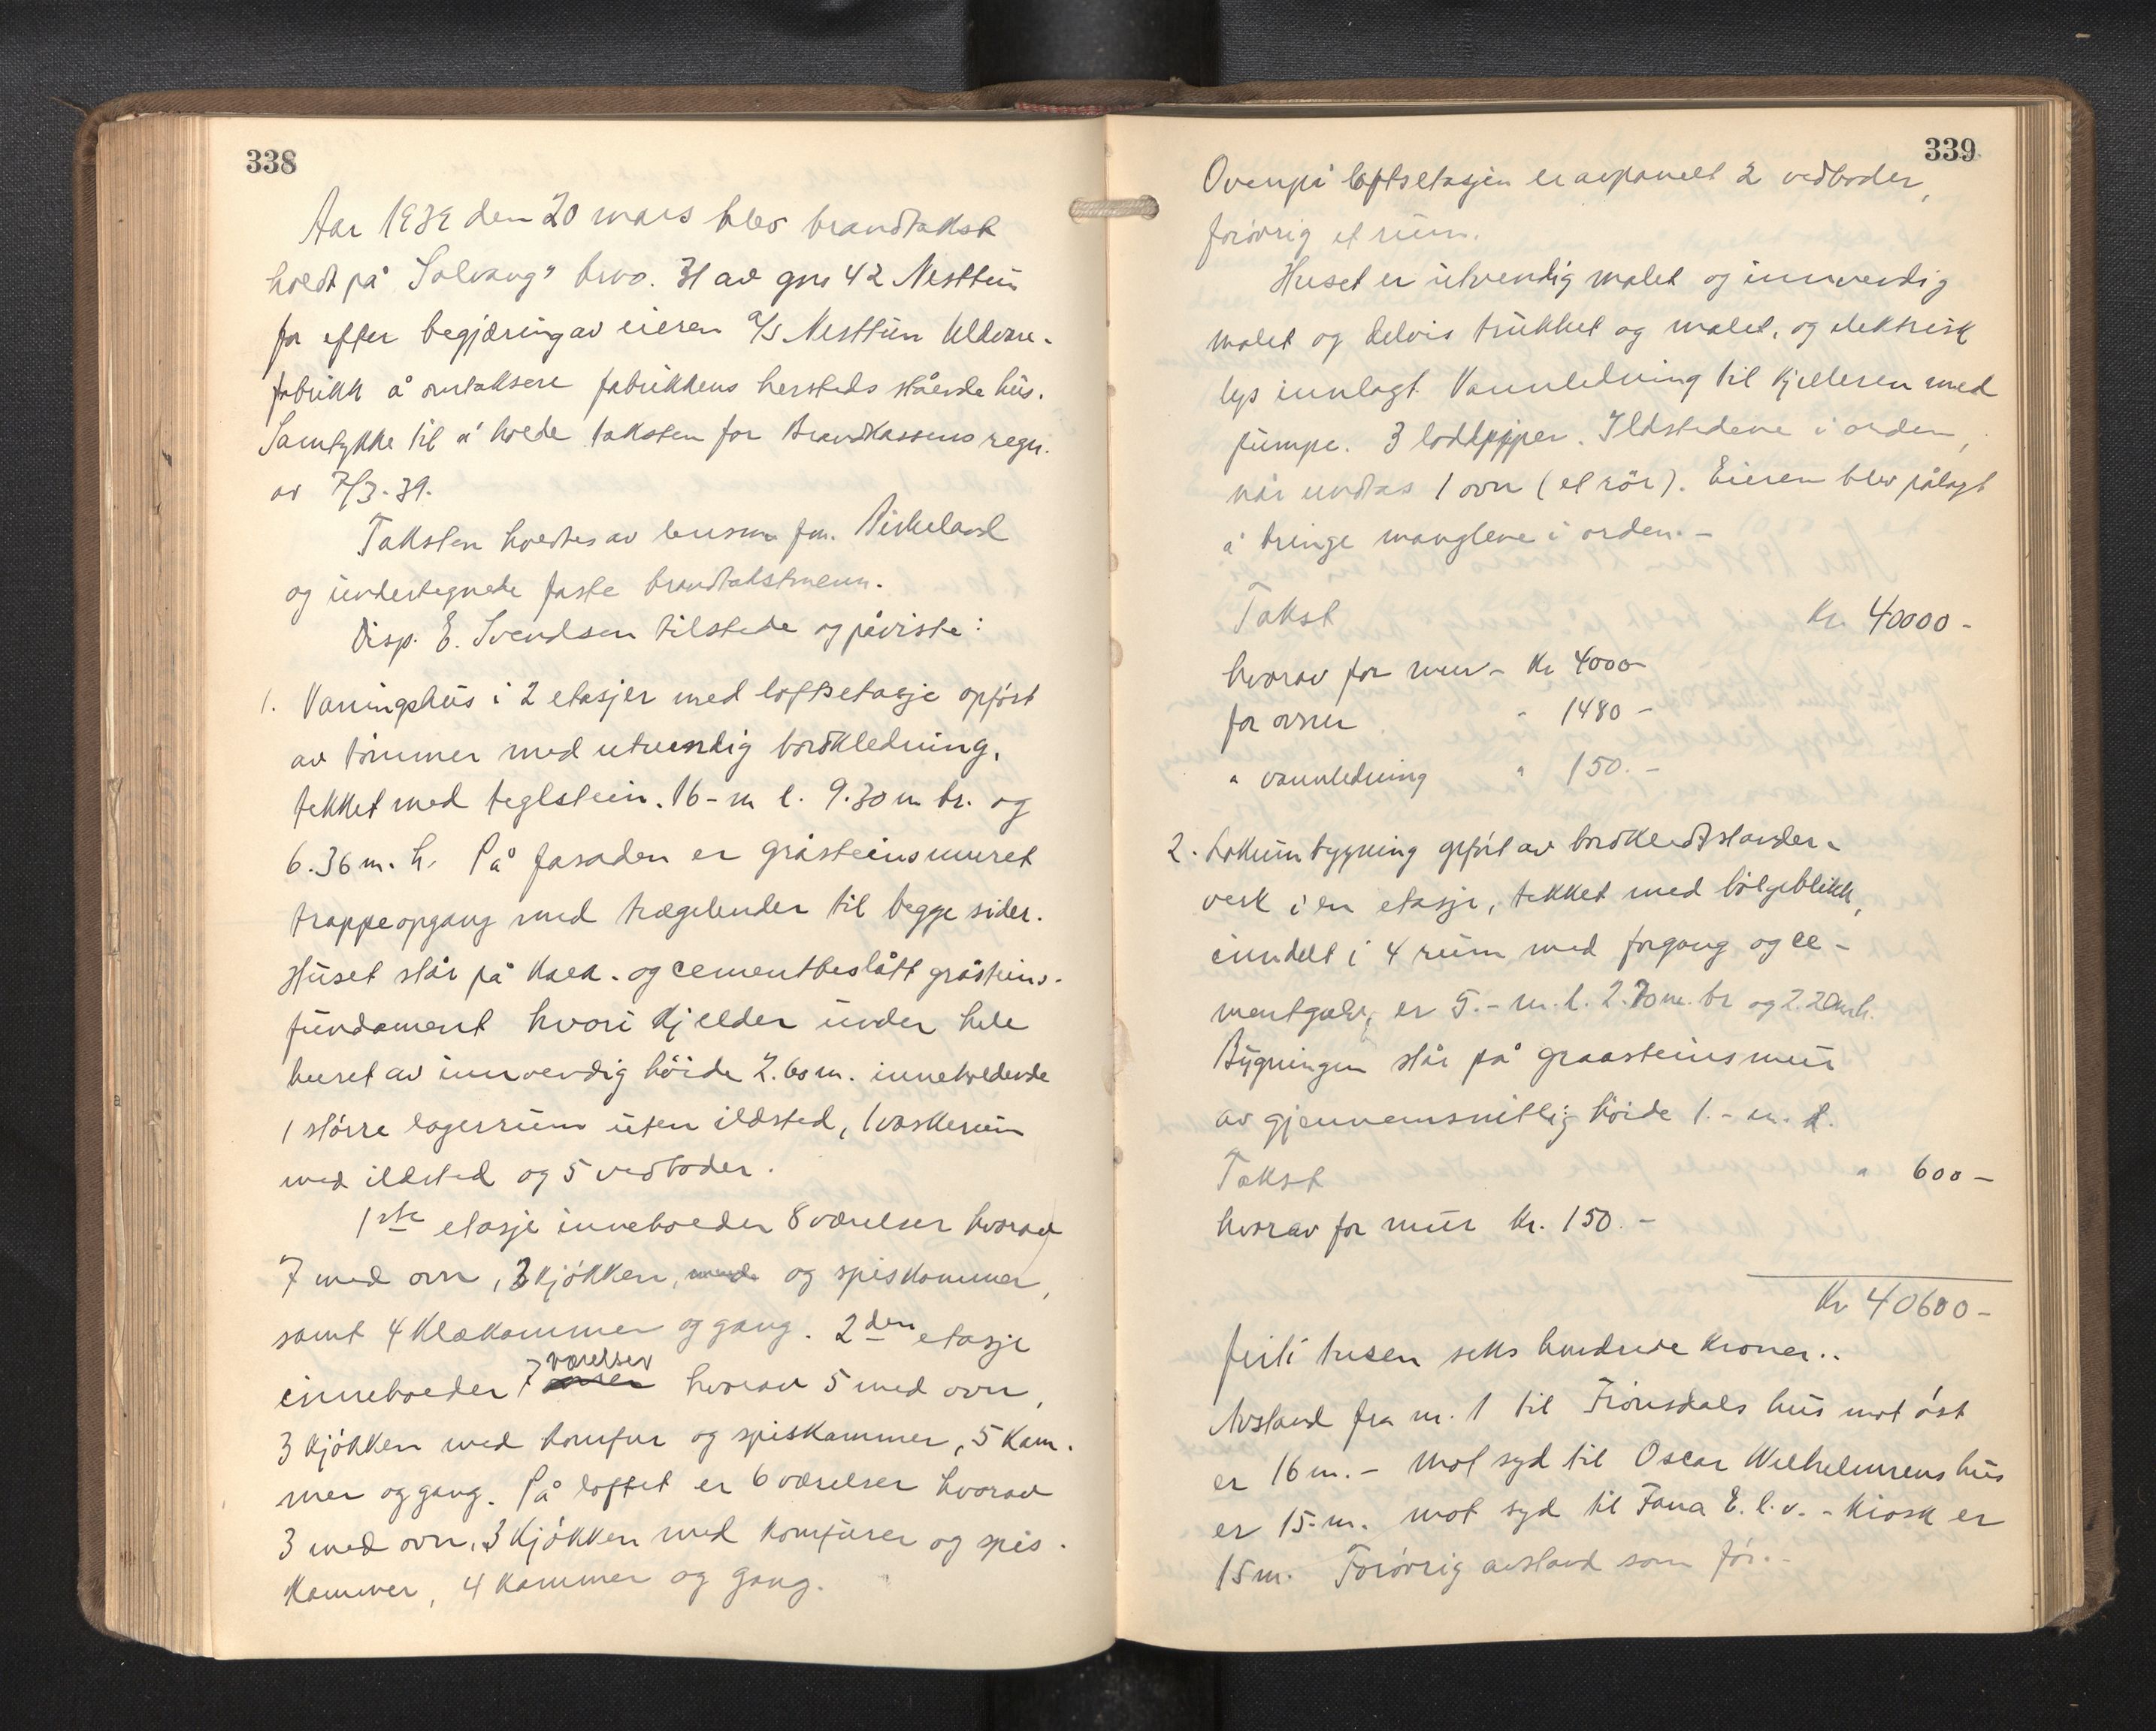 338
Aar 1939 den 20 mars blev brandtakst
holdt på "Solvang" brno. 31 av gno 42 Nesttun
for efter begjæring av eieren a/s Nesttun Uldvare-
fabrikk å omtaksere fabrikkens hersteds stående hus.
Samtykke til å holde taksten for Brandkassens regn.
av 7/3-39.
Taksten holdtes av lensm. fm. Birkeland
og undertegnede faste brandtakstmenn.
Disp. E. Svendsen tilstede og påviste:
1. Vaningshus i 2 etasjer med loftsetasje opført
av tømmer med utvendig bordkledning,
tekket med teglstein. 16 - m l. 9.30 m br. og
6.36 m. h. På fasaden er gråsteinsmuret
trappeopgang med trægelender til begge sider.
Huset står på kalk- og cementbeslått gråsteins-
fundament hvori kjelder under hele
huset av innvendig höide 2.60 m. inneholdende
1 större lagerrum uten ildsted, 1 vaskerum
med ildsted og 5 vedboder.
1ste etasje inneholder 8 værelser hvorav
7 med ovn, 3 kjökken, med og spiskammer,
samt 4 klækammer og gang. 2den etasje
inneholder 7 værelser hvorav 5 med ovn,
3 kjökken med komfur og spiskammer, 5 kam-
mer og gang. På loftet er 6 værelser hvorav
3 med ovn, 3 kjökken med komfurer og spis-
kammer, 4 kammer og gang.
339
Ovenpå loftsetasjen er avpanelt 2 vedboder,
forövrig et rum.
Huset er utvendig malet og innvendig
malet og delvis trukket og malet, og elektrisk
lys innlagt. Vannledning til kjelleren med
pumpe. 3 loddpiper. Ildstedene i orden,
når undtas 1 ovn (et rör). Eieren blev pålagt
å bringe manglene i orden. -
Takst Kr. 40000 -
hvorav for mur - Kr 4000 -
for ovner " 1480 -
" vannledning " 150. -
2. Lokumbygning opfört av bordkledt stander-
verk i en etasje, tekket med bölgeblikk,
inndelt i 4 rum med forgang og ce-
mentgulv, er 5. - m. l. 2.70 m. br og 2.20 m h.
Bygningen står på graasteinsmur
av gjennemsnitlig höide 1. - m. h.
Takst " 600 -
hvorav for mur Kr. 150. -
Kr 40600 -
firti tusen seks hundrede kroner..
Avstand fra nr. 1 til Frönsdals hus mot öst
er 16 m. - mot syd til Oscar Wilhelmsens hus
er 15. m. mot syd til Fana E. l. v. - kiosk er
15 m. Forövrig avstand som för. -